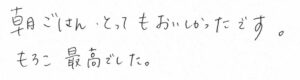 朝ごはん、とってもおいしかったです。
もろこ 最高でした。